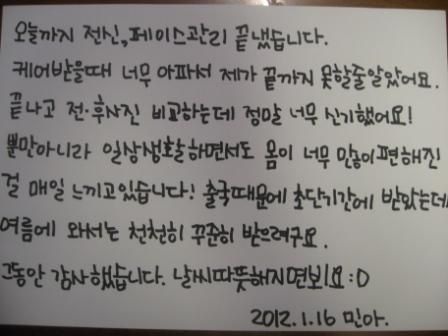 오늘까지 전신, 페이스관리 끝냈습니다.
케어받을때 너무 아파서 제가 끝까지 못할줄알았어요.
끝나고 전·후사진 비교하는데 정말 너무 신기했어요!
뿐만아니라 일상생활하면서도 몸이 너무 많이편해진
걸 매일 느끼고있습니다! 출국때문에 초단기간에 받았는데
여름에 와서는 천천히 꾸준히 받으려구요.
그동안 감사했습니다. 날씨따뜻해지면봬요:D
2012.1.16 민아.